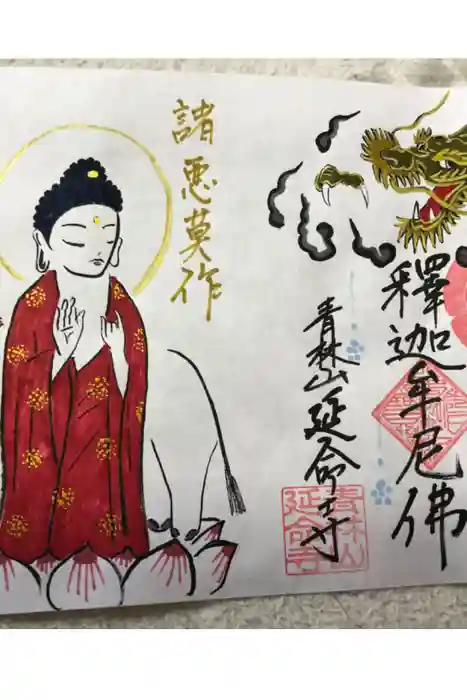 釋迦牟尼佛
青林山延命寺
青林山
延命寺
諸悪莫作